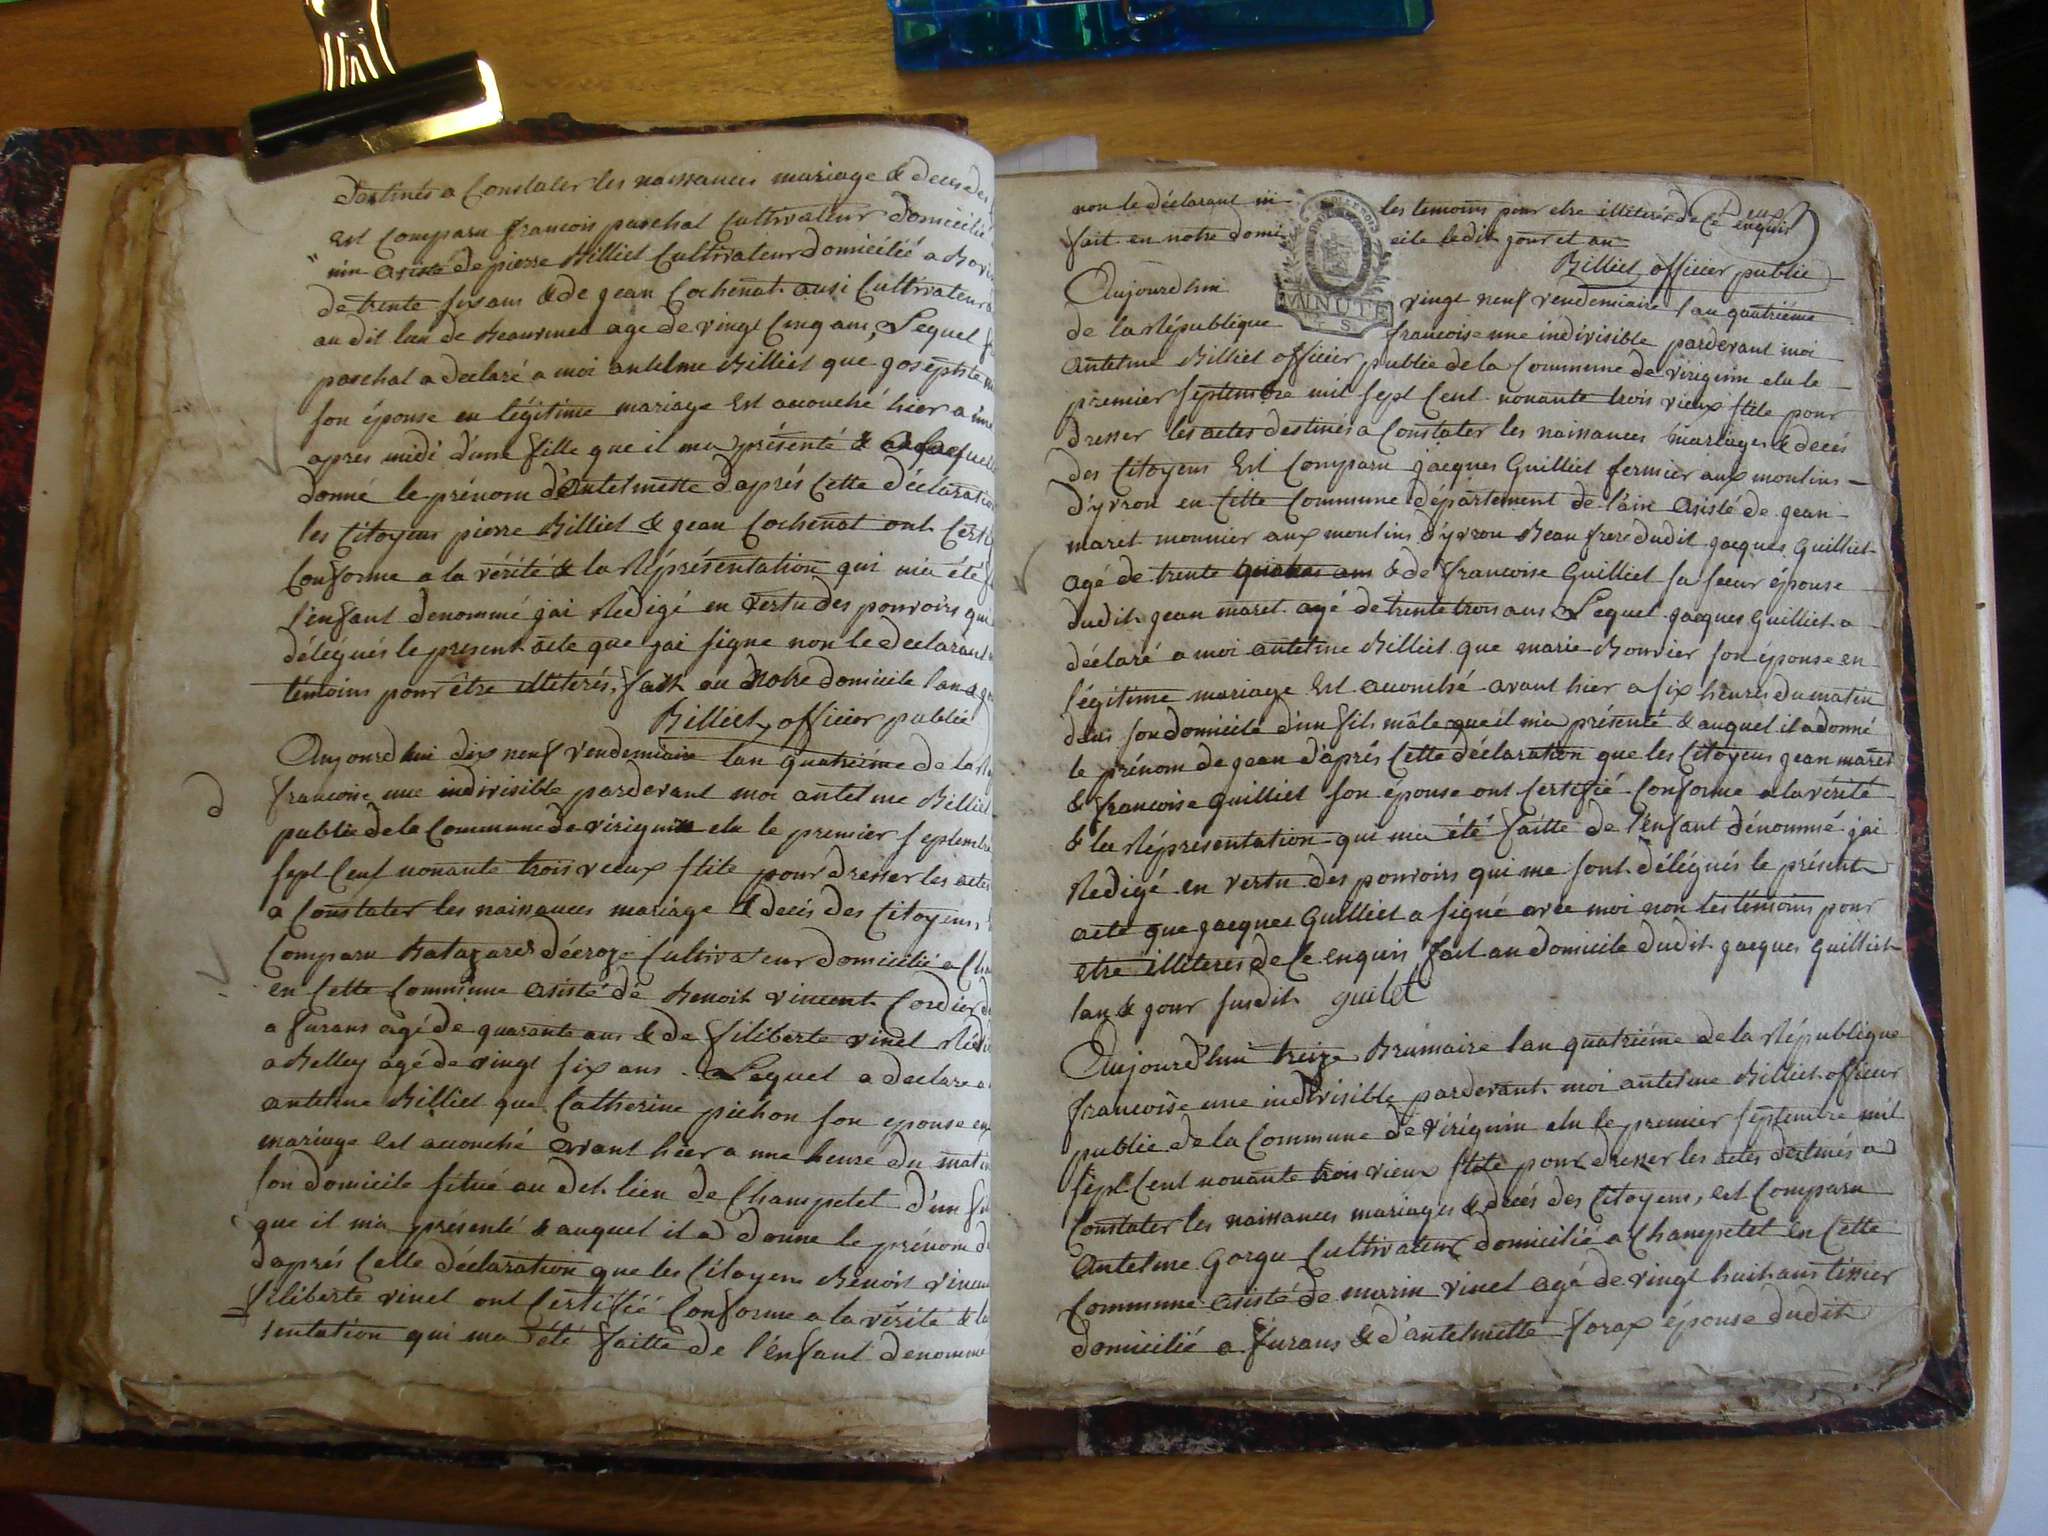 destinés a Constater les naissances mariage & deces des
Est Comparu francois paschal Cultivateur domicilié
nin asisté de pierre Billiet Cultivateur domicilié a
de trente six ans & de jean Cochenat ausi Cultivateur
au dit lieu de Beauvinet age de vingt Cinq ans, Lequel
paschal a declaré a moi antelme Billiet que josephte
son épouse en légitime mariage Est acouché hier a
apres midi d'une fille que il ma présenté & a laquelle
donné le prénom d'antelmette d'aprés Cette déclaration
les Citoyens pierre Billiet & jean Cochenat ont
Conforme a la vérité & la Réprésentation qui ma été
l'enfant denommé jai Redigé en vertu des pouvoirs qui
délégués le present acte que jai signe non le declarant
témoins pour être illiterés, fait en notre domicile lan &
Billiet, officier publie
Aujourdhui dix neuf vendemiaire lan quatriéme de la
francoise une indivisible pardevant moi antelme Billiet
publie de la Commune de virignin elu le premier septembre
sept Cent nonante trois vieux stile pour dresser les actes
a Constater les naissances mariage & decés des Citoyens,
Comparu Batazard décroze Cultivateur domicilié a
en Cette Commune asisté de Benoit vincent Cordier
a furans agé de quarante ans & de filiberte vinet
a Belley agé de vingt six ans Lequel a declare a
antelme Billiet que Catherine pichon son epouse en
mariage Est acouché avant hier a une heure du matin
son domicile situé au det. lieu de Champetet d'un
que il m'a présenté & auquel il a donne le prénom
d'aprés Cette déclaration que les Citoyens Benoit vincent
filiberte vinet ont Certifié Conforme a la vérité & la
sentation qui ma été faitte de l'enfant denomme
non le déclarant ni les temoins pour etre illiterés de Ce enquis
fait en notre domicile ledit jour et an
Billiet, officier publie
MINUTE
Aujourdhui vingt neuf vendemiaire lan quatriéme
de la République francoise une indivisible pardevant moi
antelme Billiet officier publie de la Commune de virignin elu le
premier septembre mil sept Cent nonante trois vieux stile pour
dresser les actes destinés a Constater les naissances mariages & decés
des Citoyens Est Comparu jacques Guilliet fermier aux moulins
d'yvron en Cette Commune département de l'ain asisté de jean
maret monnier aux moulins d'yvron Beau frere dudit jacques Guilliet
agé de trente ans & de francoise Guilliet sa soeur épouse
dudit jean maret agé de trente trois ans Lequel jacques Guilliet a
déclaré a moi antelme Billiet que marie Bouvier son épouse en
légitime mariage Est acouché avant hier a six heures du matin
dans son domicile d'un fils mâle que il m'a présenté & auquel il a donné
le prénom de jean d'aprés Cette déclaration que les Citoyens jean maret
& francoise Guilliet son épouse ont Certifié Conforme a la vérité
& la Répresentation qui ma été faitte de l'enfant dénommé jai
Redigé en vertu des pouvoirs qui me sont délégués le présent
acte que jacques Guilliet a signé avec moi non les témoins pour
etre illiteres de Ce enquis fait au domicile dudit jacques Guilliet
lan & jour susdit guilet
Aujourd'hui treize Brumaire lan quatriéme de la République
francoise une indivisible pardevant moi antelme Billiet officier
publie de la Commune de virignin elu le premier septembre mil
sept Cent nonante trois vieux stile pour dresser les actes destinés a
Constater les naissances mariages & decés des Citoyens, est Comparu
Antelme Gorgu Cultivateur domicilié a Champetet en Cette
Commune asisté de marin vinet agé de vingt huit ans tissier
domicilié a furans & d'antelmette forax épouse dudit